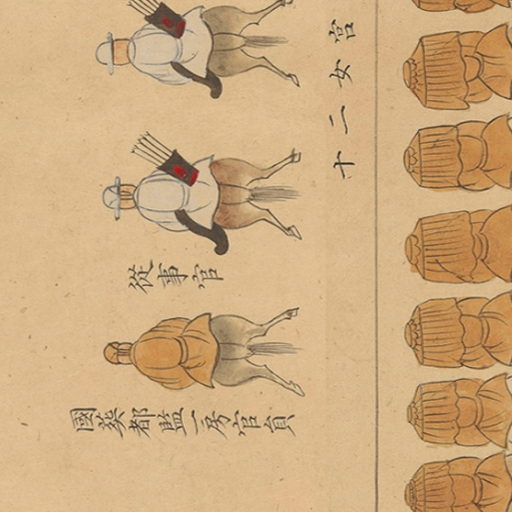 宮女二十
從事官
國葬都監一房官員